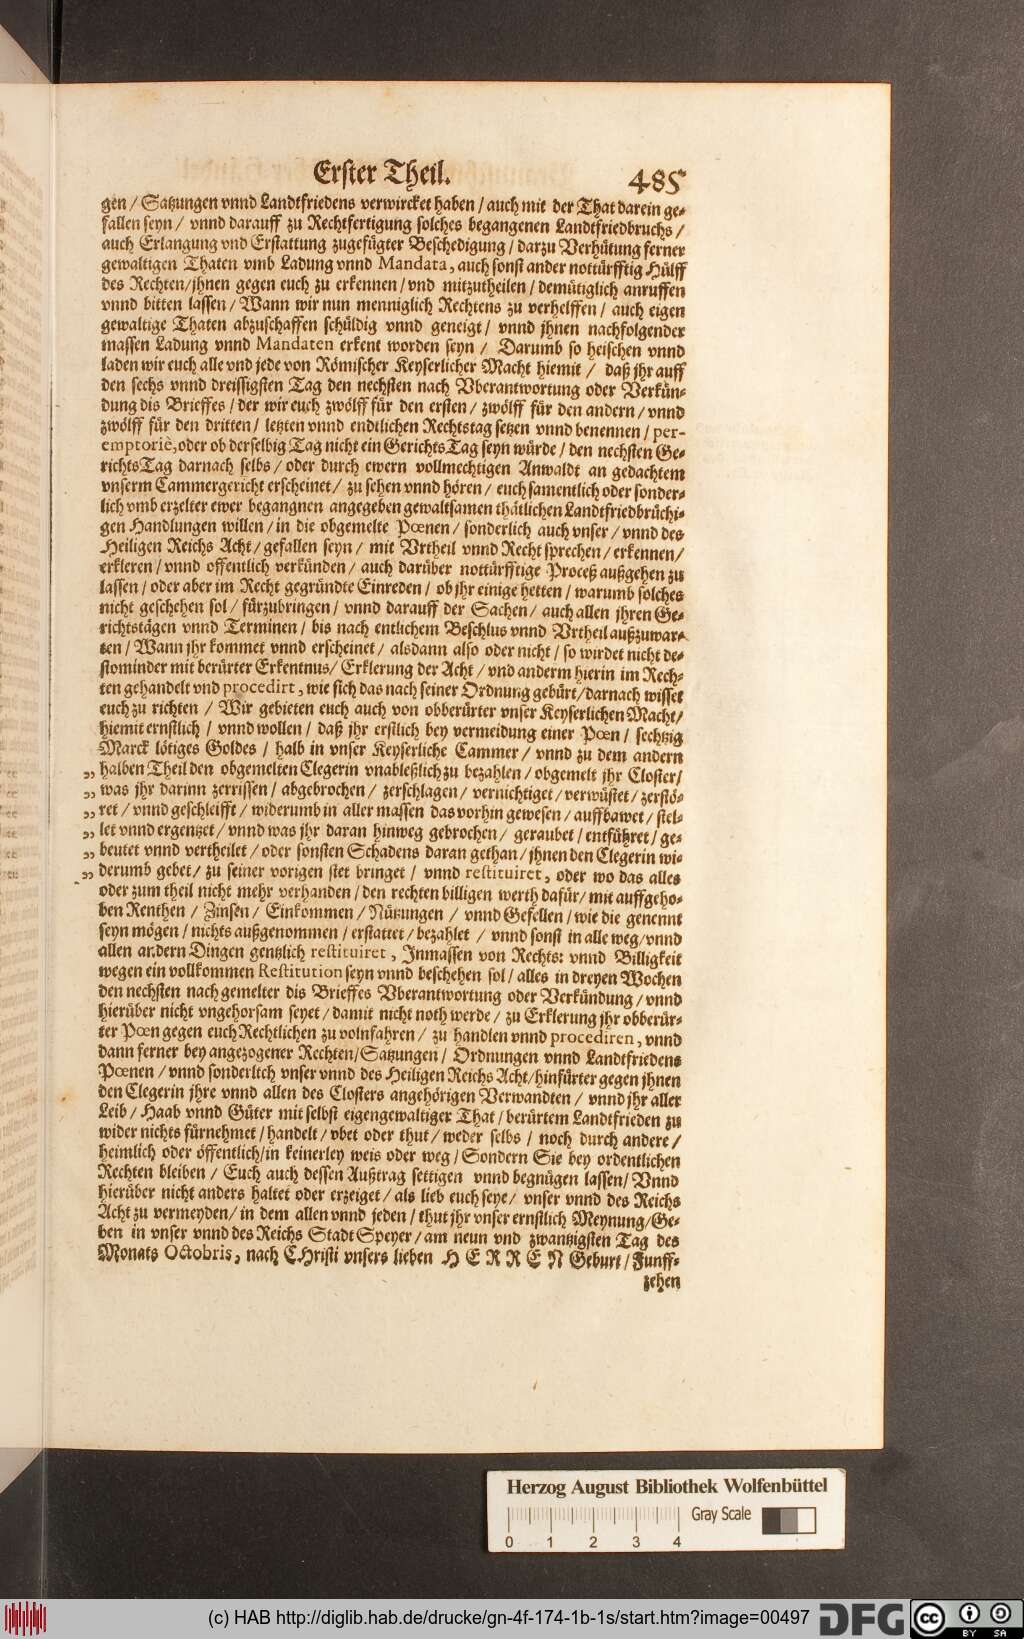 Erster Theil. 485
gen / Satzungen vnnd Landtfriedens verwircket haben / auch mit der That darein ge-
fallen seyn / vnnd darauff zu Rechtfertigung solches begangenen Landtfriedbruchs /
auch Erlangung vnd Erstattung zugefügter Beschedigung / darzu Verhütung ferner
gewaltigen Thaten vmb Ladung vnnd Mandata, auch sonst ander nottürfftig Hülff
des Rechten / jhnen gegen euch zu erkennen / vnd mitzutheilen / demütiglich anruffen
vnnd bitten lassen / Wann wir nun menniglich Rechtens zu verhelffen / auch eigen
gewaltige Thaten abzuschaffen schüldig vnnd geneigt / vnnd jhnen nachfolgender
massen Ladung vnnd Mandaten erkent worden seyn / Darumb so heischen vnnd
laden wir euch alle vnd jede von Römischer Keyserlicher Macht hiemit / daß jhr auff
den sechs vnnd dreissigsten Tag den nechsten nach Vberantwortung oder Verkün-
dung dis Brieffes / der wir euch zwölff für den ersten / zwölff für den andern / vnnd
zwölff für den dritten / letzten vnnd endtlichen Rechtstag setzen vnnd benennen / per-
emptoriè, oder ob derselbig Tag nicht ein GerichtsTag seyn würde / den nechsten Ge-
richtsTag darnach selbs / oder durch ewern vollmechtigen Anwaldt an gedachtem
vnserm Cammergericht erscheinet / zu sehen vnnd hören / euch samentlich oder sonder-
lich vmb erzelter ewer begangnen angegeben gewaltsamen thätlichen Landtfriedbrüchi-
gen Handlungen willen / in die obgemelte Pœnen / sonderlich auch vnser / vnnd des
Heiligen Reichs Acht / gefallen seyn / mit Vrtheil vnnd Recht sprechen / erkennen /
erkleren / vnnd offentlich verkünden / auch darüber nottürfftige Proceß außgehen zu
lassen / oder aber im Recht gegründte Einreden / ob jhr einige hetten / warumb solches
nicht geschehen sol / fürzubringen / vnnd darauff der Sachen / auch allen jhren Ge-
richtstägen vnnd Terminen / bis nach entlichem Beschlus vnnd Vrtheil außzuwar-
ten / Wann jhr kommet vnnd erscheinet / alsdann also oder nicht / so wirdet nicht de-
stominder mit berürter Erkentnus / Erklerung der Acht / vnd anderm hierin im Rech-
ten gehandelt vnd procedirt, wie sich das nach seiner Ordnung gebürt / darnach wisset
euch zu richten / Wir gebieten euch auch von obberürter vnser Keyserlichen Macht /
hiemit ernstlich / vnnd wollen / daß jhr erstlich bey vermeidung einer Pœn / sechtzig
Marck lötiges Goldes / halb in vnser Keyserliche Cammer / vnnd zu dem andern
„ halben Theil den obgemelten Clegerin vnableßlich zu bezahlen / obgemelt jhr Closter /
„ was jhr darinn zerrissen / abgebrochen / zerschlagen / vernichtiget / verwüstet / zerstö-
„ ret / vnnd geschleifft / widerumb in aller massen das vorhin gewesen / auffbawet / stel-
„ let vnnd ergentzet / vnnd was jhr daran hinweg gebrochen / geraubet / entführet / ge-
„ beutet vnnd vertheilet / oder sonsten Schadens daran gethan / jhnen den Clegerin wi-
„ derumb gebet / zu seiner vorigen stet bringet / vnnd restituiret, oder wo das alles
oder zum theil nicht mehr verhanden / den rechten billigen werth dafür / mit auffgeho-
ben Renthen / Zinsen / Einkommen / Nützungen / vnnd Gefellen / wie die genennt
seyn mögen / nichts außgenommen / erstattet / bezahlet / vnnd sonst in alle weg / vnnd
allen andern Dingen gentzlich restituiret, Inmassen von Rechts: vnnd Billigkeit
wegen ein vollkommen Restitution seyn vnnd beschehen sol / alles in dreyen Wochen
den nechsten nach gemelter dis Brieffes Vberantwortung oder Verkündung / vnnd
hierüber nicht vngehorsam seyet / damit nicht noth werde / zu Erklerung jhr obberür-
ter Pœn gegen euch Rechtlichen zu volnfahren / zu handlen vnnd procediren, vnnd
dann ferner bey angezogener Rechten / Satzungen / Ordnungen vnnd Landtfriedens
Pœnen / vnnd sonderlich vnser vnnd des Heiligen Reichs Acht / hinfürter gegen jhnen
den Clegerin jhre vnnd allen des Closters angehörigen Verwandten / vnnd jhr aller
Leib / Haab vnnd Güter mit selbst eigengewaltiger That / berürtem Landtfrieden zu
wider nichts fürnehmet / handelt / vbet oder thut / weder selbs / noch durch andere /
heimlich oder öffentlich / in keinerley weis oder weg / Sondern Sie bey ordentlichen
Rechten bleiben / Euch auch dessen Außtrag settigen vnnd begnügen lassen / Vnnd
hierüber nicht anders haltet oder erzeiget / als lieb euch seye / vnser vnnd des Reichs
Acht zu vermeyden / in dem allen vnnd jeden / thut jhr vnser ernstlich Meynung / Ge-
ben in vnser vnnd des Reichs Stadt Speyer / am neun vnd zwantzigsten Tag des
Monats Octobris, nach CHristi vnsers lieben HERREN Geburt / Funff-
zehen
Herzog August Bibliothek Wolfenbüttel
Gray Scale
0 1 2 3 4
(c) HAB http://diglib.hab.de/drucke/gn-4f-174-1b-1s/start.htm?image=00497
DFG cc BY SA